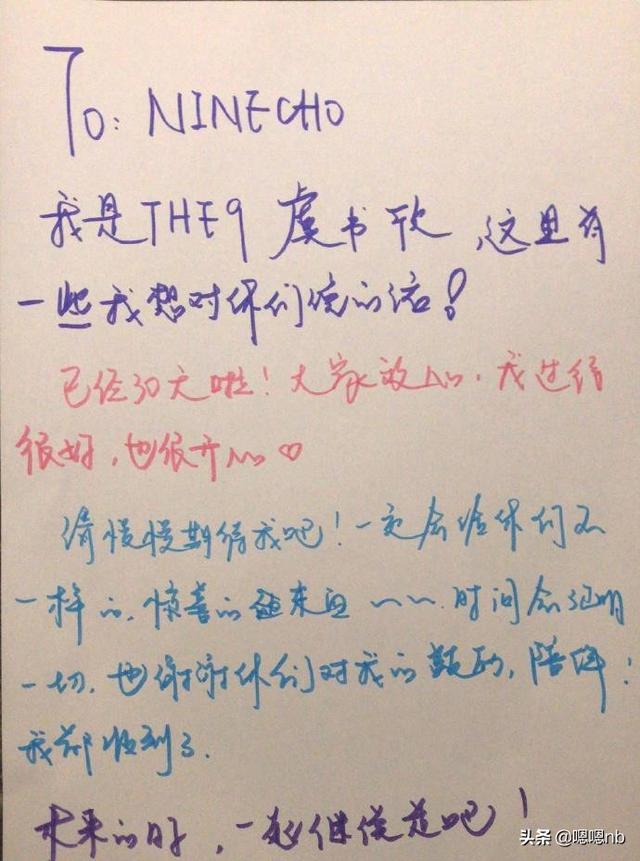 To: NINECHO
我是THE9 虞书欣,这里有
一些我想对你们说的话!
已经30天啦!大家放心,我过得
很好,也很开心♡
请慢慢期待我吧!一定会给你们不
一样的,惊喜的 ~~ 时间会证明
一切,也谢谢你们对我的鼓励,陪伴!
我都收到了.
未来的时,一起继续走吧!
头条 @嗯嗯nb